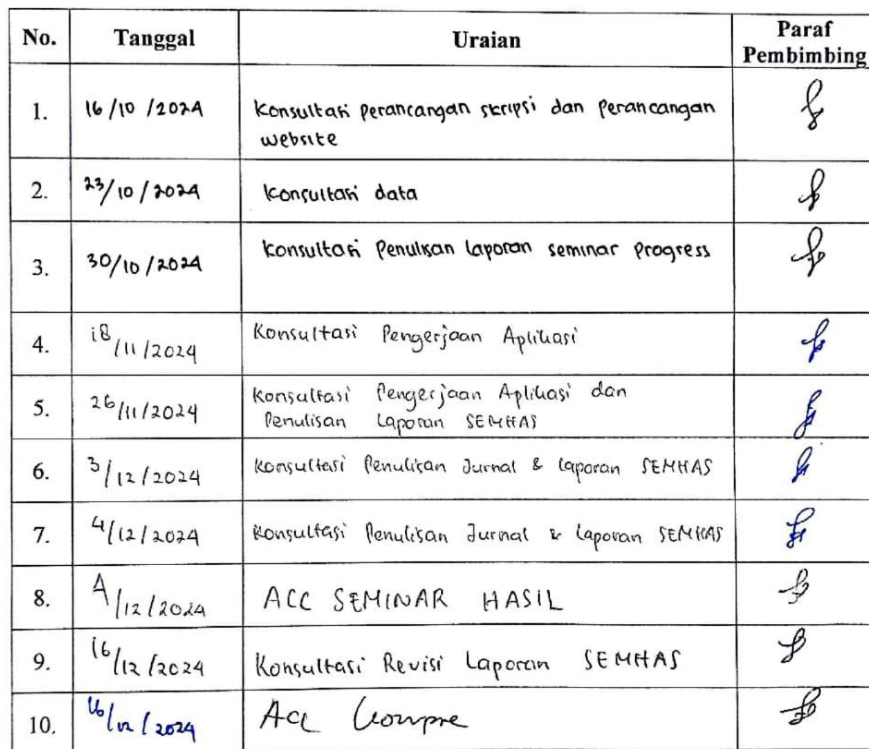 No. Tanggal Uraian Paraf
Pembimbing
1. 16/10/2024 Konsultasi perancangan skripsi dan perancangan
website
2. 23/10/2024 Konsultasi data
3. 30/10/2024 Konsultasi Penulisan laporan seminar Progress
4. 18/11/2024 Konsultasi Pengerjaan Aplikasi
5. 26/11/2024 Konsultasi Pengerjaan Aplikasi dan
Penulisan Laporan SEMHAS
6. 3/12/2024 Konsultasi Penulisan Jurnal & Laporan SEMHAS
7. 4/12/2024 Konsultasi Penulisan Jurnal & Laporan SEMHAS
8. 4/12/2024 ACC SEMINAR HASIL
9. 16/12/2024 Konsultasi Revisi Laporan SEMHAS
10. 16/12/2024 Acc Kompre